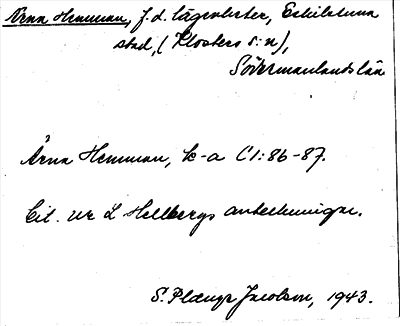 Ärna Hemman, f.d. lägenheter, Eskilstuna
stad, (Klosters s:n),
Södermanlands län
Ärna Hemman, k-a C1:86-87.
Cit. ur L Hellbergs anteckningar.
S. Jacobson, 1943.